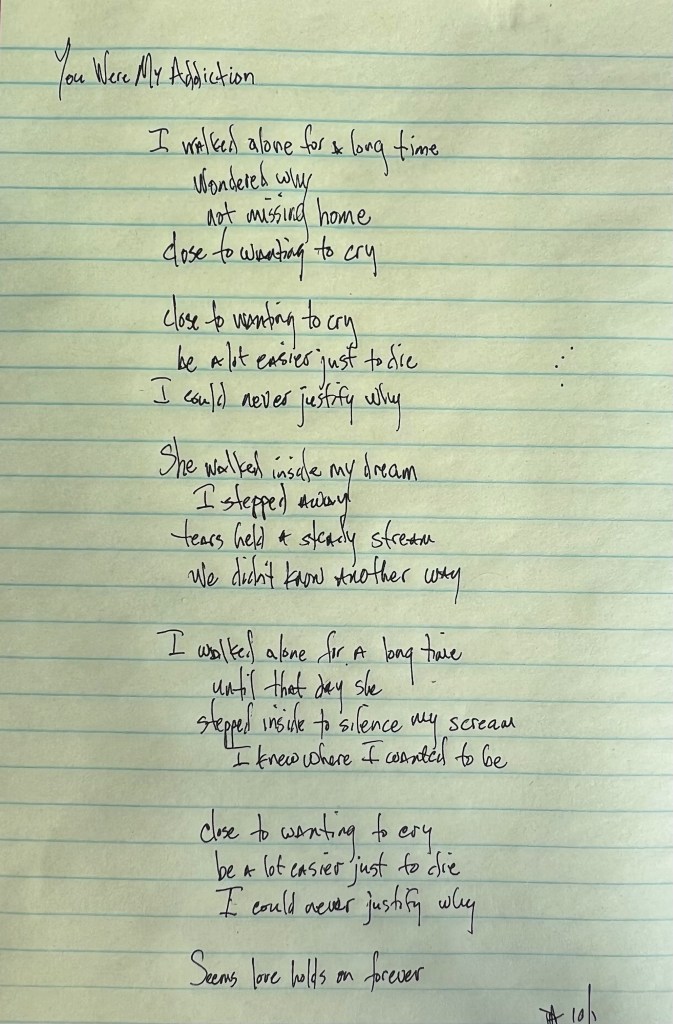 You Were My Addiction
I walked alone for a long time
Wondered why
not missing home
close to wanting to cry
close to wanting to cry
be a lot easier just to die
I could never justify why
She walked inside my dream
I stepped away
tears held a steady stream
We didn't know another way
I walked alone for a long time
until that day she
stepped inside to silence my scream
I knew where I wanted to be
close to wanting to cry
be a lot easier just to die
I could never justify why
Seems love holds on forever